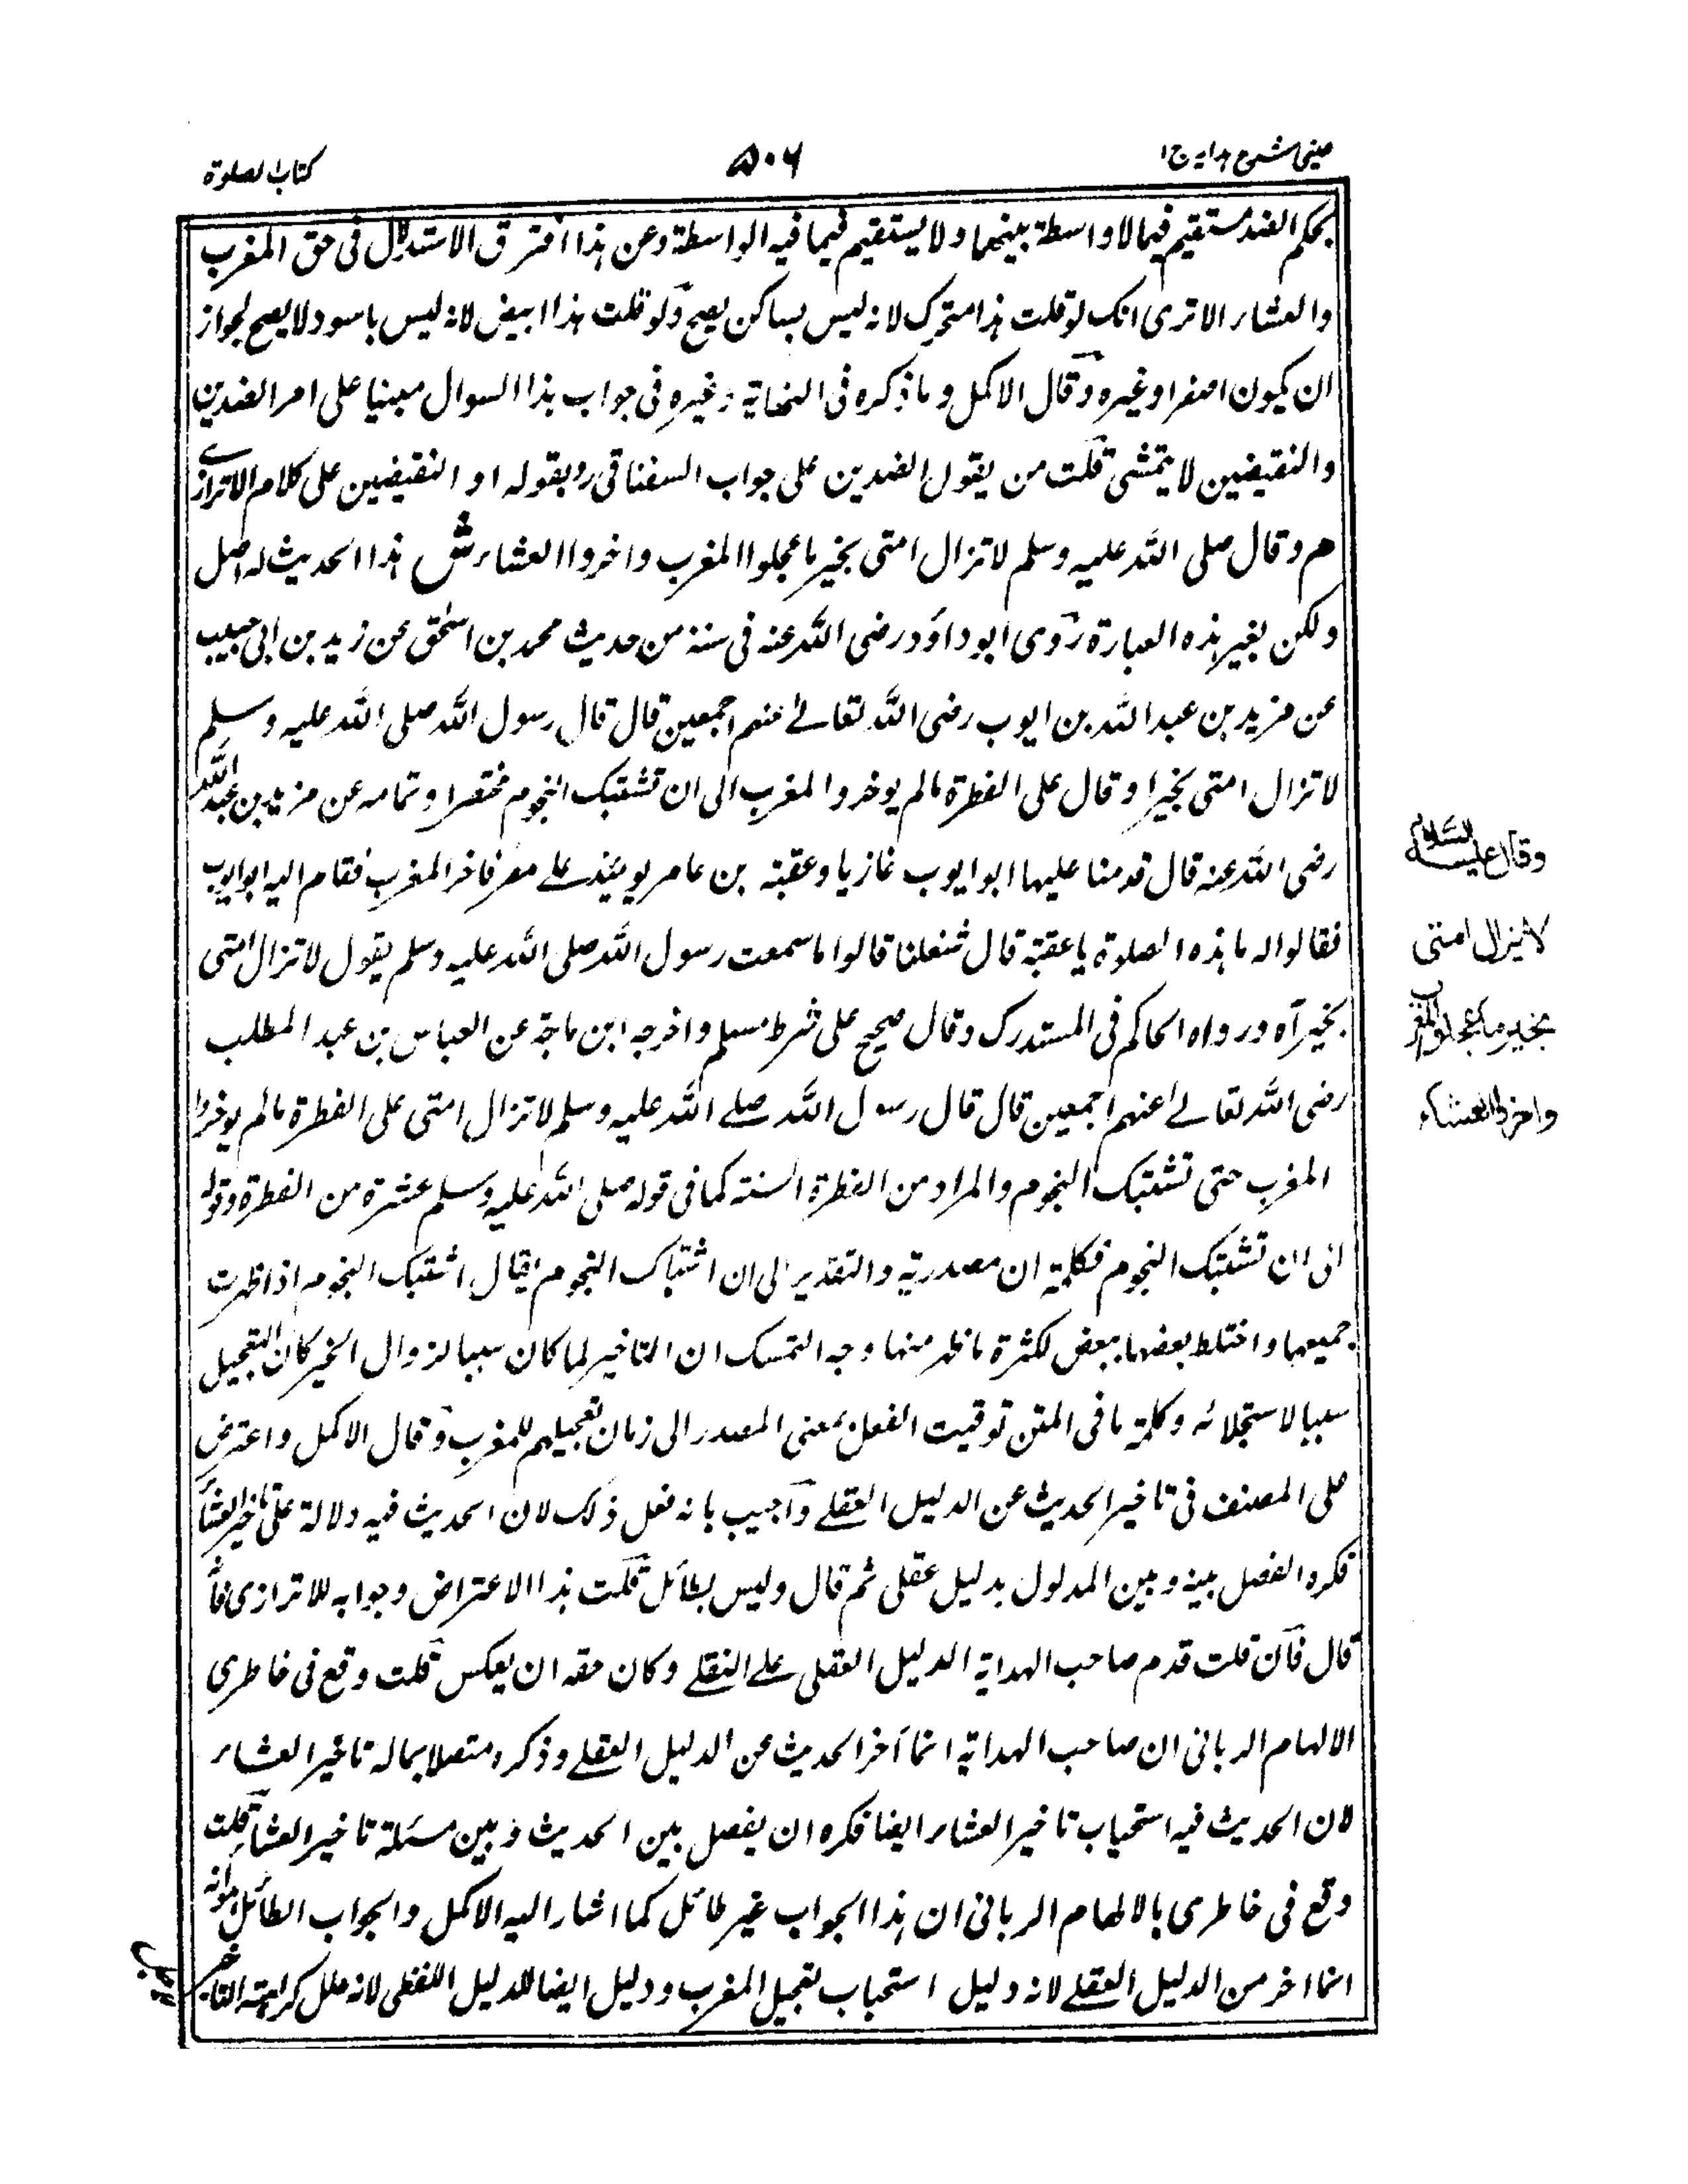 عینی شرح هدایه ج ۱
۵۰۶
کتاب الصلوة
بحکم الضد مستقیم فیما لا واسطة بینهما ولا یستقیم فیما فیه الواسطة وعن هذا افترق الاستدلال فی حق المغرب
والعشاء الا تری انک لو قلت هذا متحرک لانه لیس بساکن یصح ولو قلت هذا ابیض لانه لیس باسود لا یصح لجواز
ان یکون اصفر او غیره وقال الاکمل وما ذکره فی النهایة وغیره فی جواب هذا السوال مبنیا علی امر الضدین
والنقیضین لا یتمشی قلت من یقول الضدین علی جواب السغناقی رد بقوله او النقیضین علی کلام الاترازی
م وقال صلی الله علیه وسلم لا تزال امتی بخیر ما عجلوا المغرب واخروا العشاء ش هذا الحدیث له اصل
ولکن بغیر هذه العبارة روی ابو داؤد رضی الله عنه فی سننه من حدیث محمد بن اسحق عن زید بن ابی حبیب
عن مزید بن عبد الله بن ایوب رضی الله تعالے عنهم اجمعین قال قال رسول الله صلی الله علیه وسلم
لا تزال امتی بخیر او قال علی الفطرة مالم یوخروا المغرب الی ان تشتبک النجوم مختصرا وتمامه عن مزید بن عبد الله
رضی الله عنه قال قدمنا علیها ابو ایوب غازیا وعقبة بن عامر یومئذ علے مصر فاخر المغرب فقام الیه ابو ایوب
فقالوا له ما هذه الصلوة یا عقبة قال شغلنا قالوا ما سمعت رسول الله صلی الله علیه وسلم یقول لا تزال امتی
بخیر آه ورواه الحاکم فی المستدرک وقال صحیح علی شرط مسلم واخرجه ابن ماجة عن العباس بن عبد المطلب
رضی الله تعالے عنهم اجمعین قال قال رسول الله صلے الله علیه وسلم لا تزال امتی علی الفطرة مالم یوخروا
المغرب حتی تشتبک النجوم والمراد من الفطرة السنة کما فی قوله صلی الله علیه وسلم عشرة من الفطرة وقوله
الی ان تشتبک النجوم فکلمة ان مصدریة والتقدیر الی ان اشتباک النجوم یقال اشتبک النجوم اذا ظهرت
جمیعها واختلط بعضها ببعض لکثرة ما ظهر منها وجه التمسک ان التاخیر لما کان سببا لزوال الخیر کان التعجیل
سببا لاستجلائه وکلمة ما فی المتن توقیت الفعل بمعنی المصدر الی زمان تعجیلهم للمغرب وقال الاکمل واعترض
علی المصنف فی تاخیر الحدیث عن الدلیل العقلے واجیب بانه فعل ذلک لان الحدیث فیه دلالة علی تاخیر العشاء
فکره الفصل بینه وبین المدلول بدلیل عقلی ثم قال ولیس بطائل قلت هذا الاعتراض وجوابه للاترازی فانه
قال فان قلت قدم صاحب الهدایة الدلیل العقلی علے النقلے وکان حقه ان یعکس قلت وقع فی خاطری
الالهام الربانی ان صاحب الهدایة انما آخر الحدیث عن الدلیل العقلے وذکره متصلا بماله تاخیر العشاء
لان الحدیث فیه استحباب تاخیر العشاء ایضا فکره ان یفصل بین الحدیث وبین مسئلة تاخیر العشاء قلت
وقع فی خاطری بالالهام الربانی ان هذا الجواب غیر طائل کما اشار الیه الاکمل والجواب الطائل هو انه
انما اخر من الدلیل العقلے لانه دلیل استحباب تعجیل المغرب ودلیل ایضا للدلیل اللفظی لانه علل کراهیته التاخیر
وقال علیه السلام
لا یزال امتی
بخیر ما عجلوا المغرب
واخروا العشاء